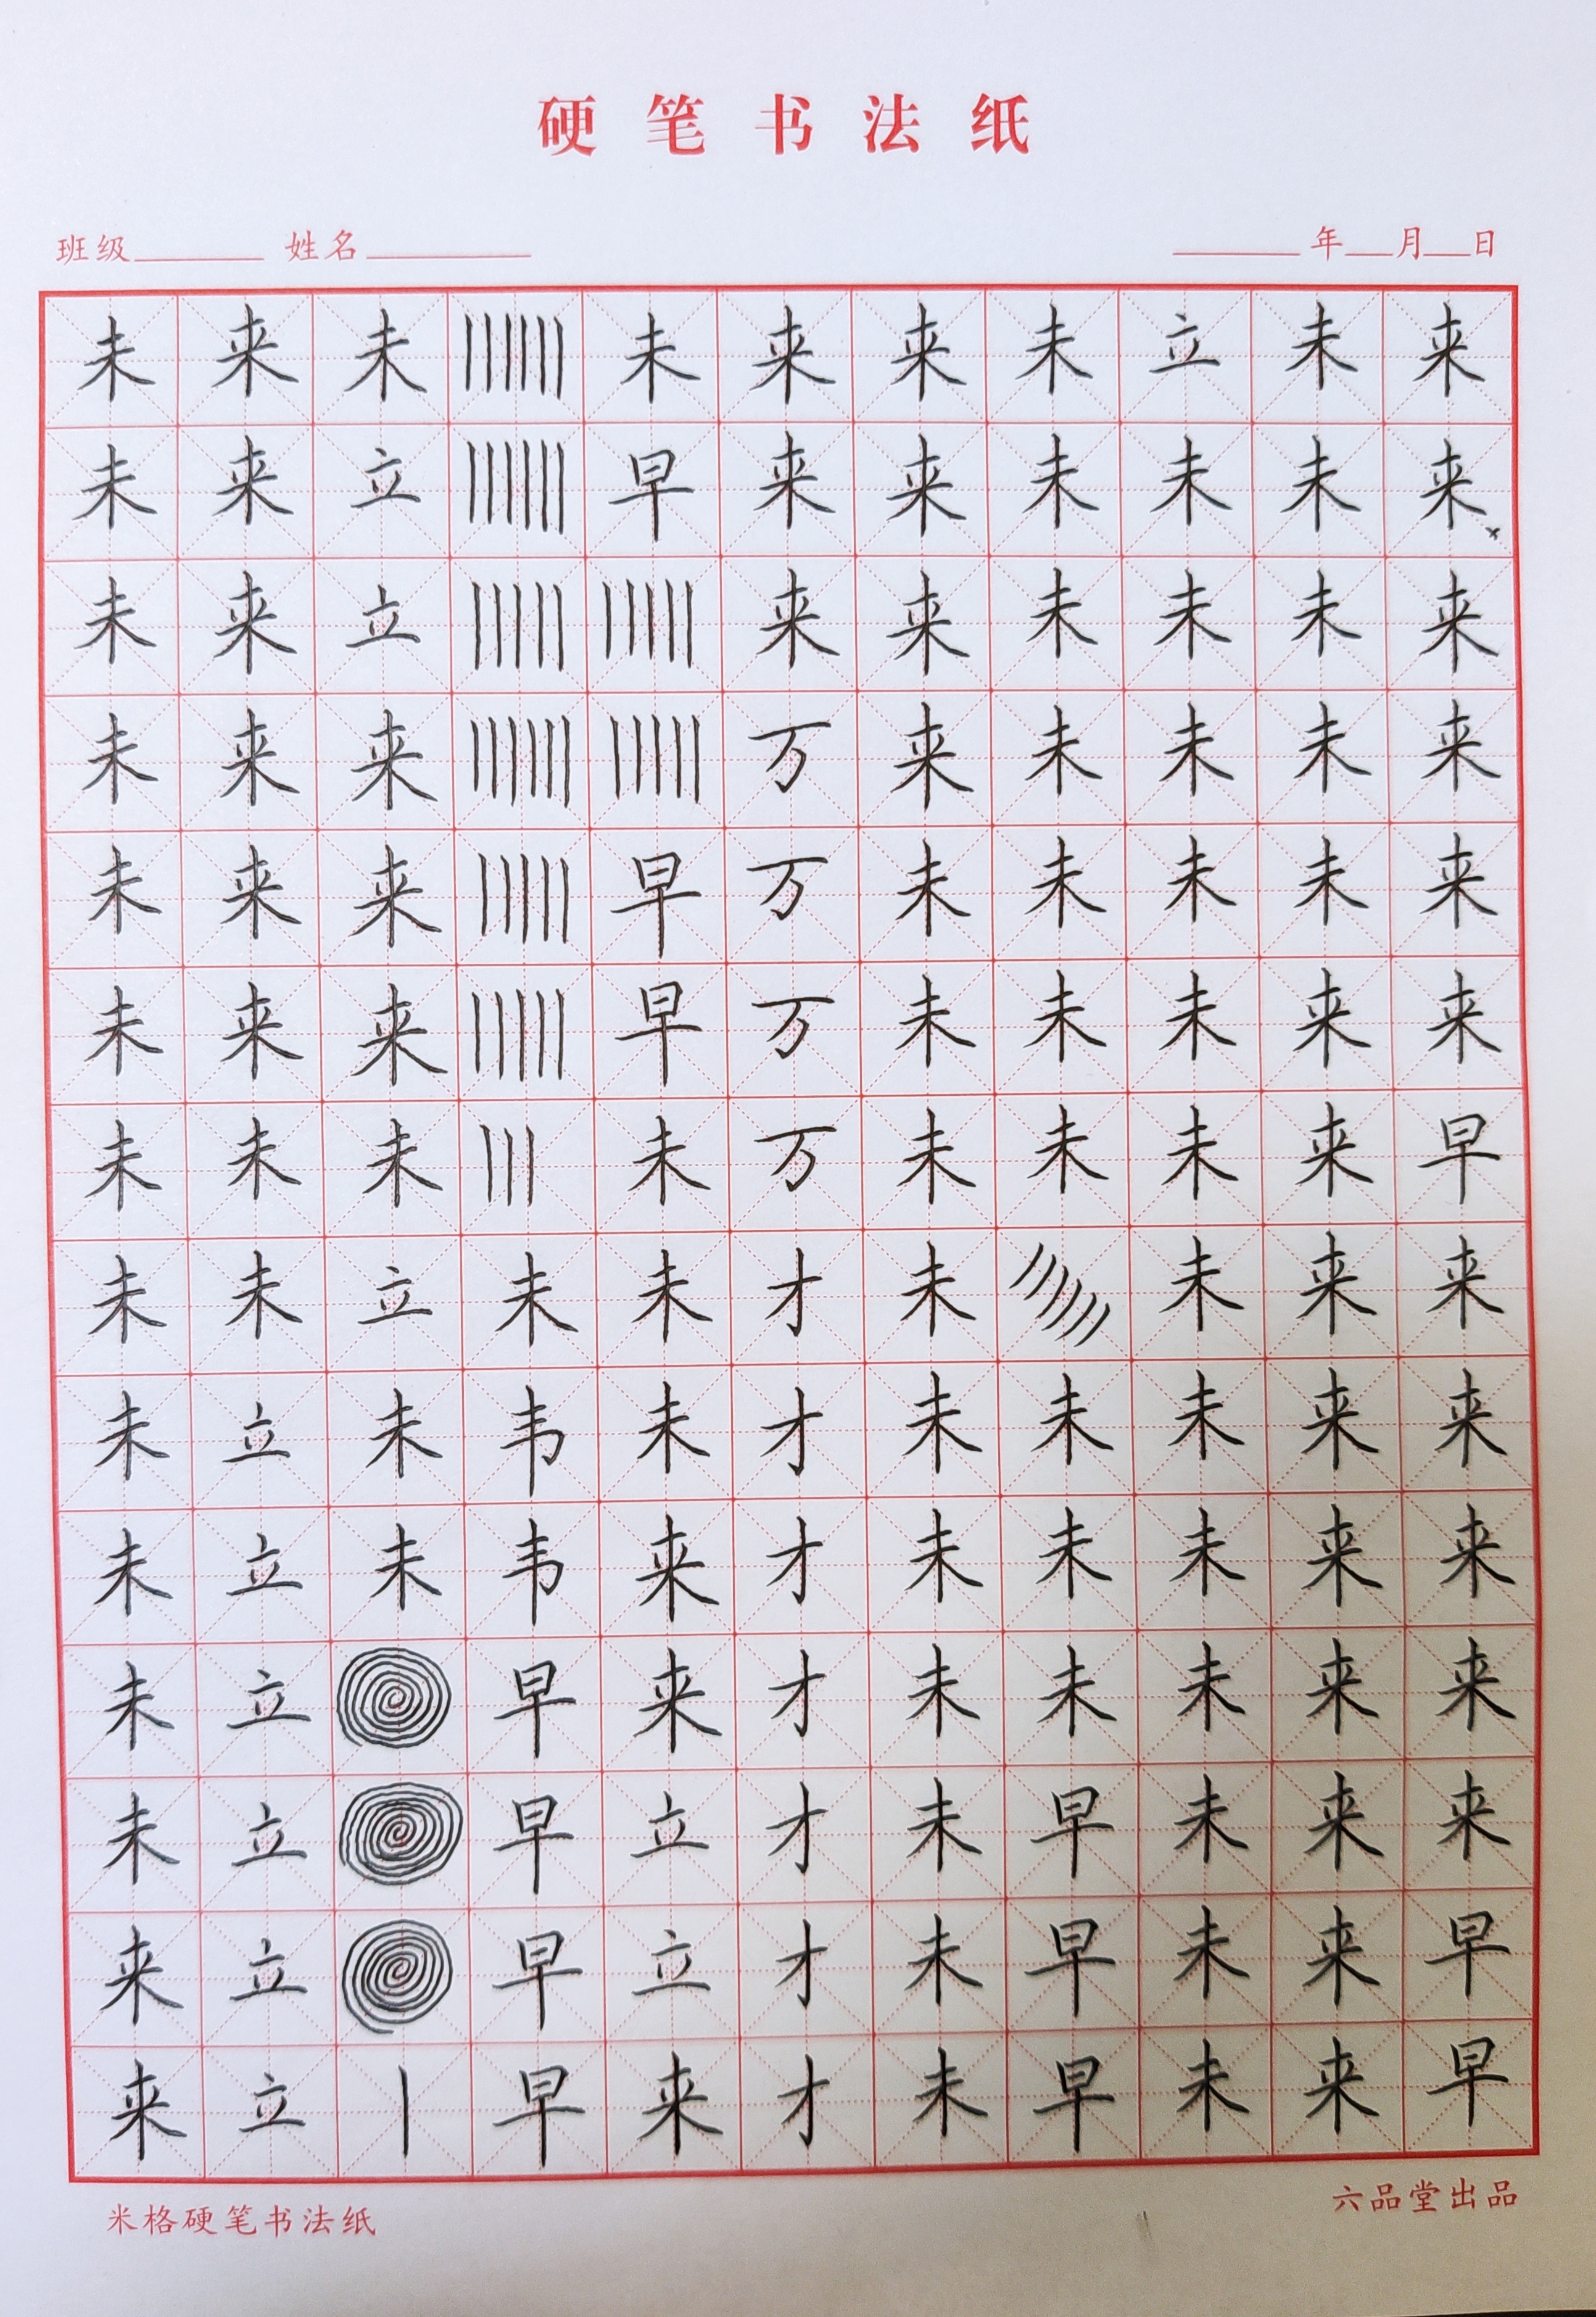 硬笔书法纸
班级 姓名 年 月 日
未 来 未 未 来 来 未 立 未 来
未 来 立 早 来 来 未 未 未 来
未 来 立 来 来 未 未 未 来
未 来 来 万 来 未 未 未 来
未 来 来 早 万 未 未 未 未 来
未 来 来 早 万 未 未 未 来 来
未 未 未 未 万 未 未 未 来 早
未 未 立 未 未 才 未 未 来 来
未 立 未 韦 未 才 未 未 未 来 来
未 立 未 韦 来 才 未 未 未 来 来
未 立 早 来 才 未 未 未 来 来
未 立 早 立 才 未 早 未 来 来
来 立 早 立 才 未 早 未 来 早
来 立 丨 早 来 才 未 早 未 来 早
米格硬笔书法纸 六品堂出品